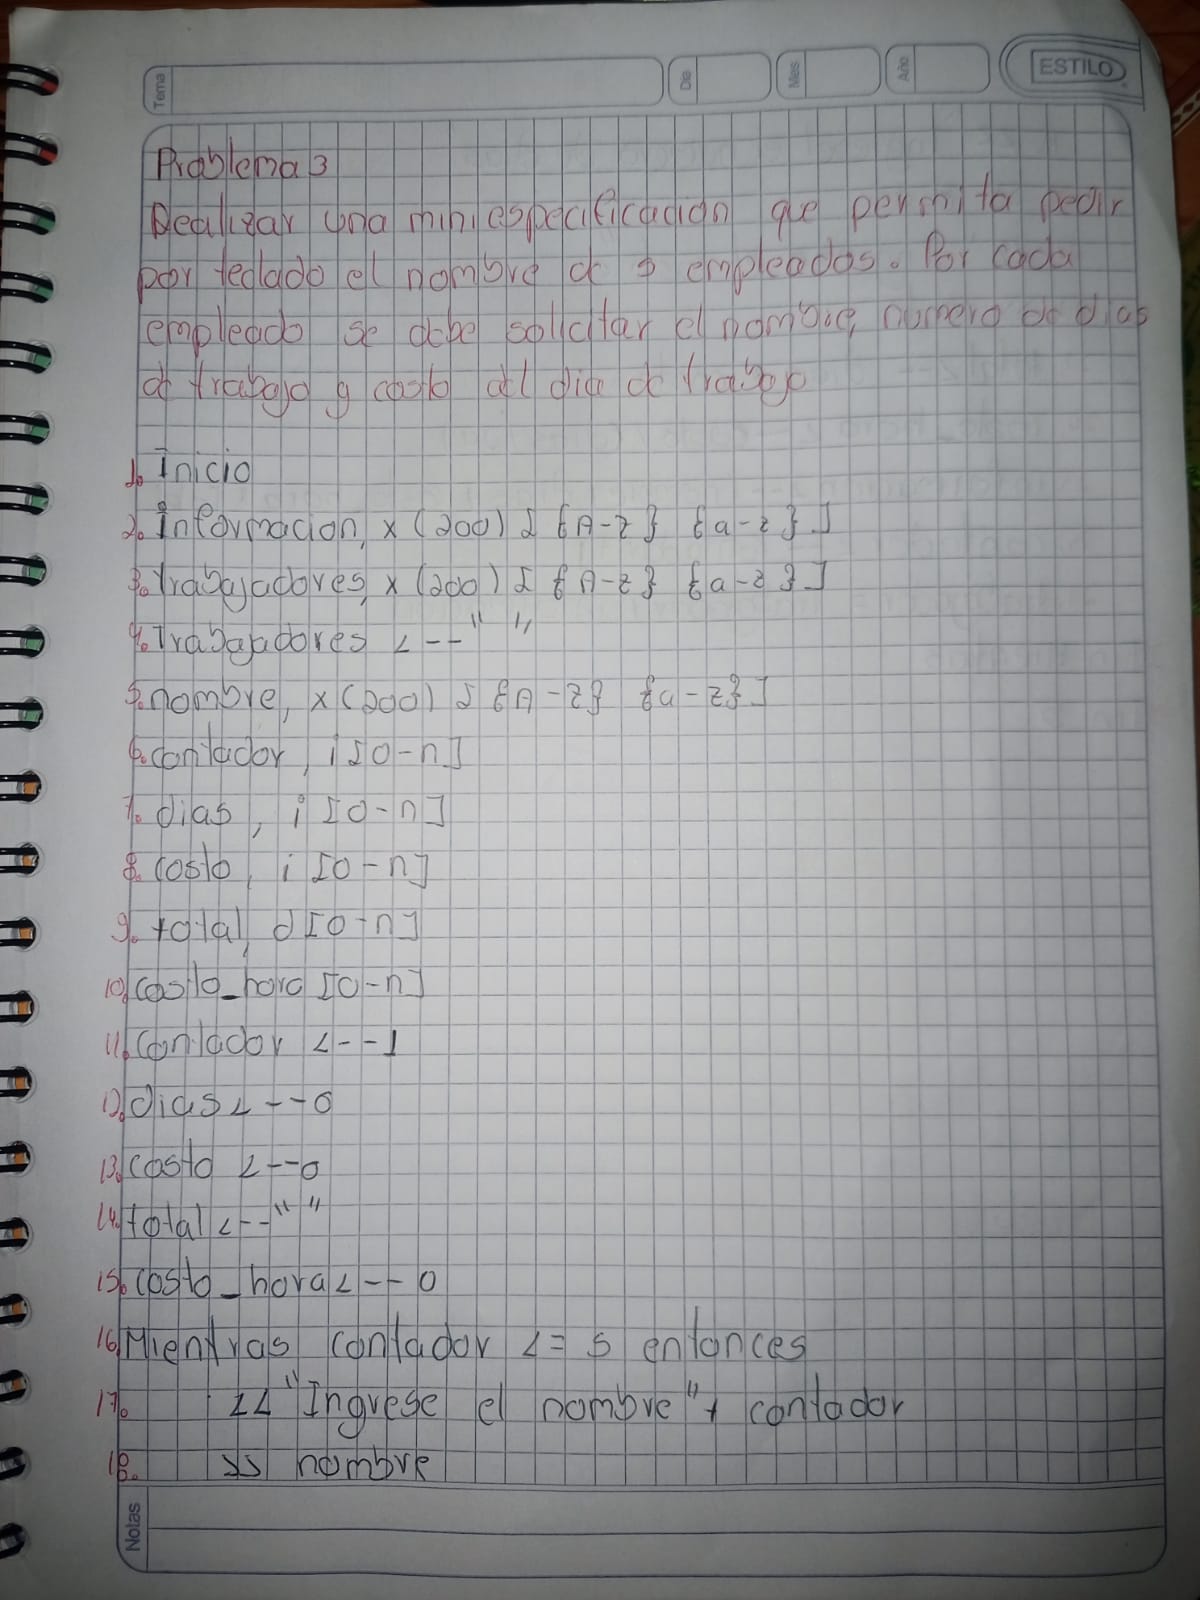 Tema
Dia
Mes
Año
ESTILO
Problema 3
Realizar una miniespecificacion que permita pedir
por teclado el nombre de 5 empleados. Por cada
empleado se debe solicitar el nombre, numero de dias
de trabajo y costo del dia de trabajo
1. Inicio
2. Informacion, x (200) [ {A-Z} {a-z} ]
3. trabajadores, x (200) [ {A-Z} {a-z} ]
4. Trabajadores <--" "
5. nombre, x (200) [ {A-Z} {a-z} ]
6. contador, i [0-n]
7. dias, i [0-n]
8. costo, i [0-n]
9. total, d [0-n]
10. costo_hora [0-n]
11. contador <--1
12. dias <--0
13. costo <--0
14. total <--" "
15. costo_hora <--0
16. Mientras contador <= 5 entonces
17. << "Ingrese el nombre" + contador
18. >> nombre
Notas